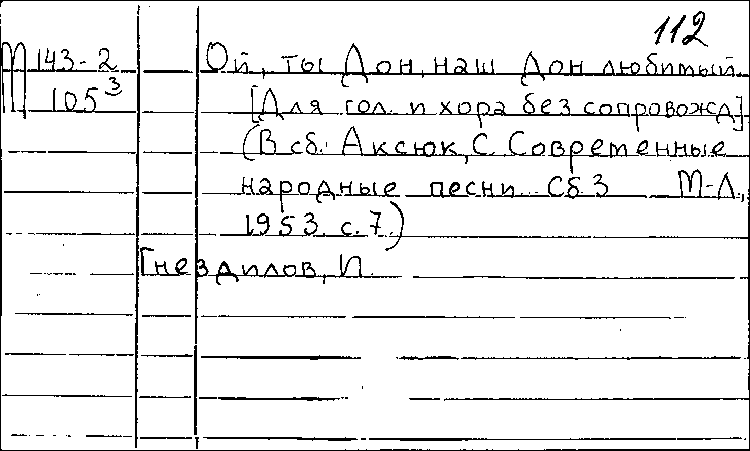 112
М 143-2 Ой, ты Дон, наш Дон любимый.
105³ [Для гол. и хора без сопровожд]
(В сб: Аксюк, С. Современные
народные песни. Сб 3 М-Л.,
1953. с. 7.)
Гнездилов, И.